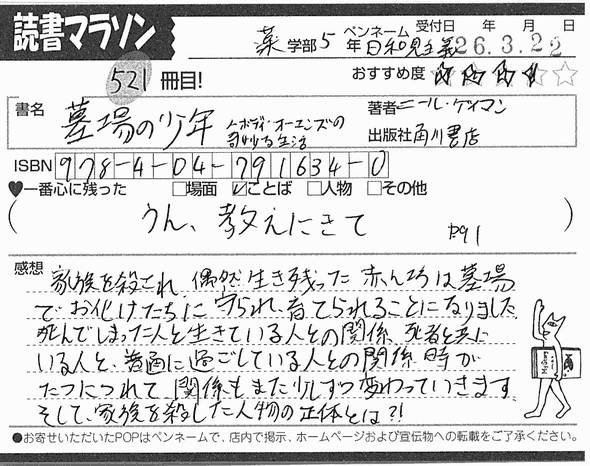 読書マラソン
薬学部5年 ペンネーム 日和見主義 受付日 年 月 日 26.3.22
521冊目! おすすめ度 ☆☆☆☆☆
書名 墓場の少年 ノーボディ・オーエンズの奇妙な生活
著者 ニール・ゲイマン
出版社 角川書店
ISBN 978-4-04-791634-0
♥一番心に残った □場面 ☑ことば □人物 □その他
( うん、教えにきて P91 )
感想 家族を殺され、偶然生き残った赤ん坊は墓場
でお化けたちに守られ、育てられることになりました
死んでしまった人と生きている人との関係、死者と共に
いる人と、普通に過ごしている人との関係 時が
たつにつれて関係もまた少しずつ変わっていきます
そして、家族を殺した人物の正体とは?!
●お寄せいただいたPOPはペンネームで、店内で掲示、ホームページおよび宣伝物への転載をご了承ください。